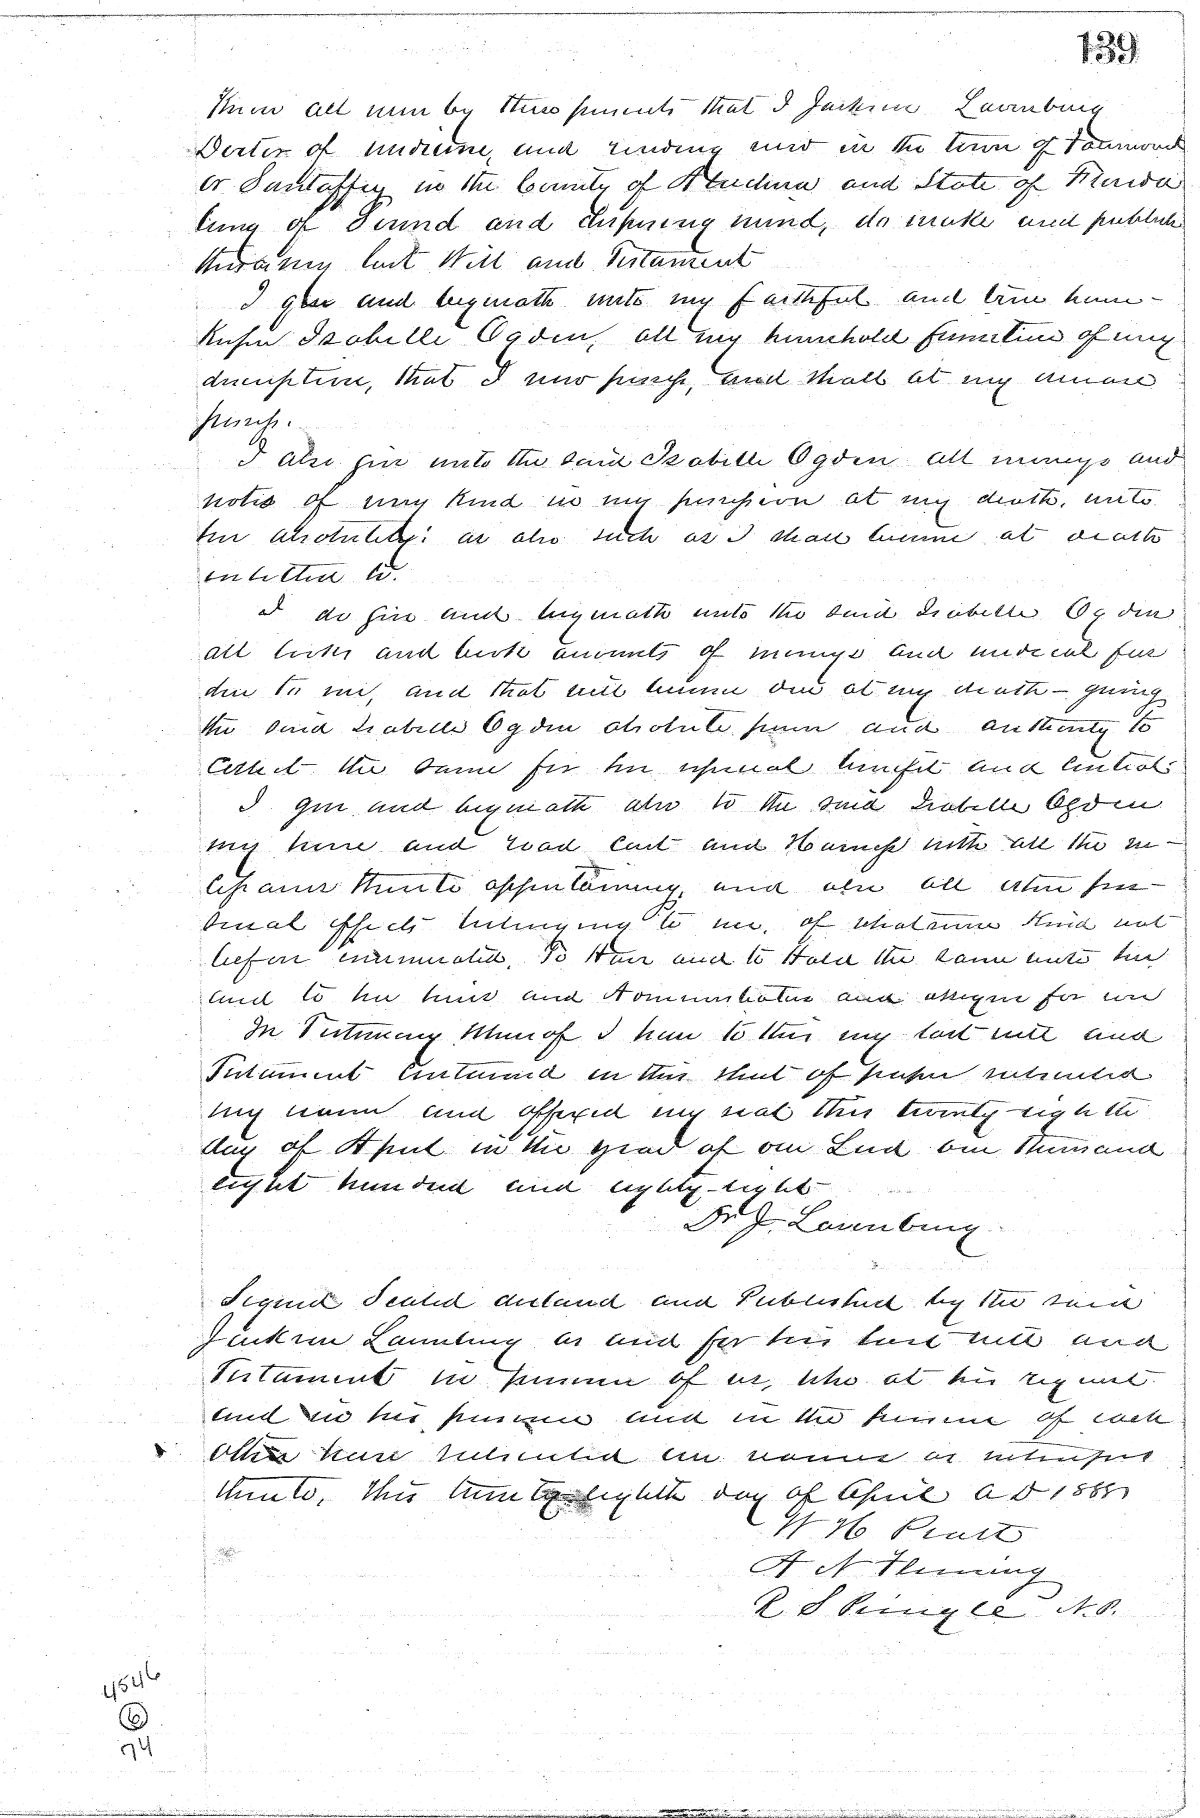 139
Know all men by these presents that I Jackson Lavenburg
Doctor of medicine, and residing now in the town of
or Santaffey in the County of Alachua and State of Florida
being of Sound and disposing mind, do make and publish
this as my last Will and Testament
I give and beqeath unto my faithful and true house-
keeper Izabelle Ogden, all my household furniture of every
description, that I now possess, and shall at my decease
possess.
I also give unto the said Izabelle Ogden all moneys and
notes of every kind in my possession at my death, unto
her absolutely: as also such as I shall become at death
entitled to.
I do give and beqeath unto the said Isabelle Ogden
all books and book accounts of moneys and medical fees
due to me, and that will become due at my death - giving
the said Isabelle Ogden absolute power and authority to
Collect the same for her especial benefit and Control:
I give and beqeath also to the said Isabelle Ogden
my horse and road cart and Harness with all the ne-
cessaries thereto appertaining, and also all other per-
sonal effects belonging to me, of whatsoever kind not
before enumerated, To Have and to Hold the same unto her
and to her heirs and Administrators and assigns for ever
In Testimony Whereof I have to this my last will and
Testament Contained in this sheet of paper subscribed
my name and affixed my seal this twenty-eighth
day of April in the year of our Lord one thousand
eight hundred and eighty-eight
Dr J. Lavenburg
Signed Sealed declared and Published by the said
Jackson Lavenburg as and for his last will and
Testament in presence of us, who at his request
and in his presence and in the presence of each
other have subscribed our names as witnesses
thereto, this twenty eighth day of April A D 1888
W H Pratt
A N Fleming
R S Pringle N.P.
4546
6
74